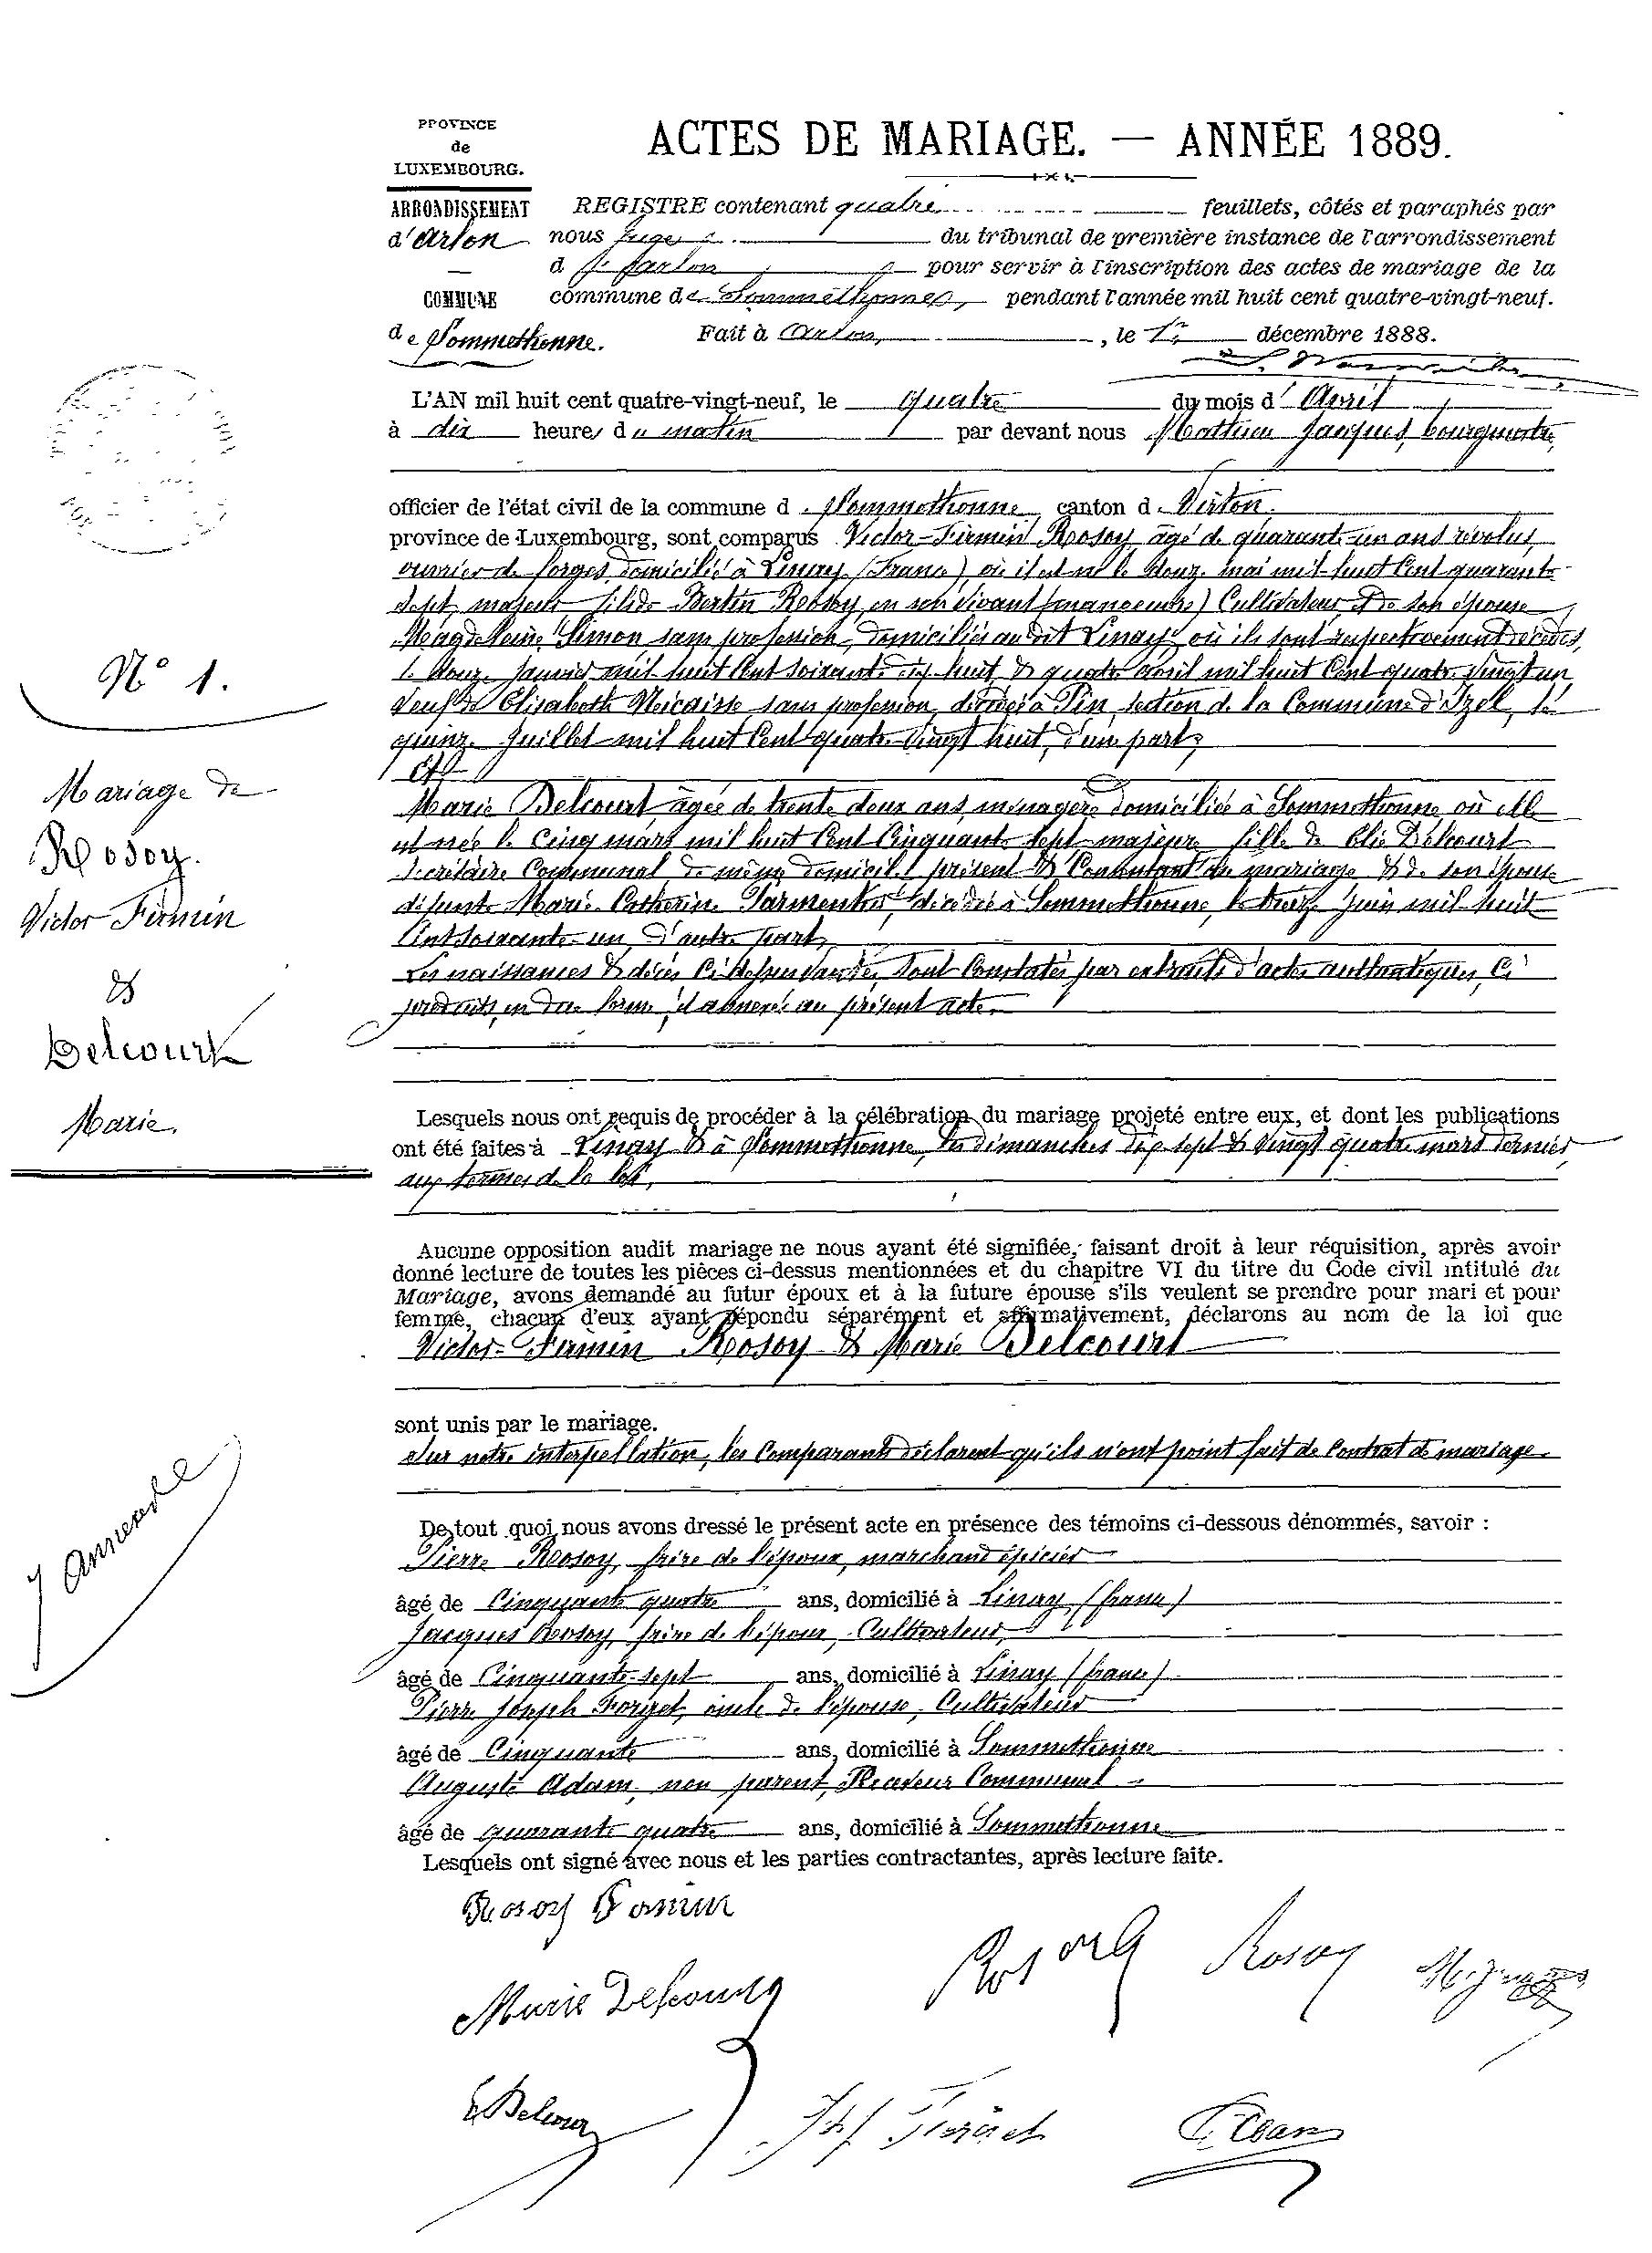 PROVINCE
de
LUXEMBOURG.
ARRONDISSEMENT
d'Arlon
COMMUNE
de Sommethonne.
ACTES DE MARIAGE. — ANNÉE 1889.
REGISTRE contenant quatre feuillets, côtés et paraphés par
nous Juge du tribunal de première instance de l'arrondissement
d'Arlon pour servir à l'inscription des actes de mariage de la
commune de Sommethonne, pendant l'année mil huit cent quatre-vingt-neuf.
Fait à Arlon, le 1er décembre 1888.
L'AN mil huit cent quatre-vingt-neuf, le quatre du mois d'Avril
à dix heures du matin par devant nous Mathieu Jacques, bourgmestre,
officier de l'état civil de la commune de Sommethonne, canton de Virton.
province de Luxembourg, sont comparus Victor-Firmin Rosoy, âgé de quarante-un ans révolus,
ouvrier de forges, domicilié à Linay (France) où il est né le douze mai mil huit cent quarante
sept, majeur fils de Bertin Rosoy, en son vivant Cultivateur et de son épouse
Magdeleine Simon sans profession, domiciliés audit Linay où ils sont respectivement décédés,
le douze janvier mil huit Cent soixante dix huit & quatre avril mil huit Cent quatre vingt un
veuf d'Elisabeth Nicaisse sans profession, décédée à Pin, section de la Commune d'Izel, le
quinze Juillet mil huit Cent quatre vingt huit, d'une part,
Et
Marie Delcourt, âgée de trente deux ans, ménagère domiciliée à Sommethonne où elle
est née le cinq mars mil huit Cent Cinquante sept majeure fille de Elie Delcourt
secrétaire Communal de même domicile présent & Consentant au mariage & de son épouse
défunte Marie Catherine Parmentier, décédée à Sommethonne le treize Juin mil huit
Cent soixante un, d'autre part,
Les naissances & décès Ci-dessus sont Constatés par extraits d'actes authentiques, Ci
produits en due forme, et annexés au présent acte.
Lesquels nous ont requis de procéder à la célébration du mariage projeté entre eux, et dont les publications
ont été faites à Linay & à Sommethonne, les dimanches dix sept & vingt quatre mars dernier,
aux termes de la loi,
Aucune opposition audit mariage ne nous ayant été signifiée, faisant droit à leur réquisition, après avoir
donné lecture de toutes les pièces ci-dessus mentionnées et du chapitre VI du titre du Code civil intitulé du
Mariage, avons demandé au futur époux et à la future épouse s'ils veulent se prendre pour mari et pour
femme, chacun d'eux ayant répondu séparément et affirmativement, déclarons au nom de la loi que
Victor-Firmin Rosoy & Marie Delcourt
sont unis par le mariage.
Sur notre interpellation, les Comparants déclarent qu'ils n'ont point fait de Contrat de mariage.
De tout quoi nous avons dressé le présent acte en présence des témoins ci-dessous dénommés, savoir :
Pierre Rosoy, frère de l'époux, marchand épicier
âgé de Cinquante quatre ans, domicilié à Linay (france)
Jacques Rosoy, frère de l'époux, Cultivateur,
âgé de Cinquante-sept ans, domicilié à Linay (france)
Pierre Joseph Forget, oncle de l'épouse, Cultivateur
âgé de Cinquante ans, domicilié à Sommethonne
Auguste Adam, non parent, Receveur Communal
âgé de quarante quatre ans, domicilié à Sommethonne
Lesquels ont signé avec nous et les parties contractantes, après lecture faite.
Rosoy Firmin
Rosoy
Rosoy
Marie Delcourt
E Delcour
N° 1.
Mariage de
Rosoy.
Victor Firmin
&
Delcourt
Marie.
7 Annexes